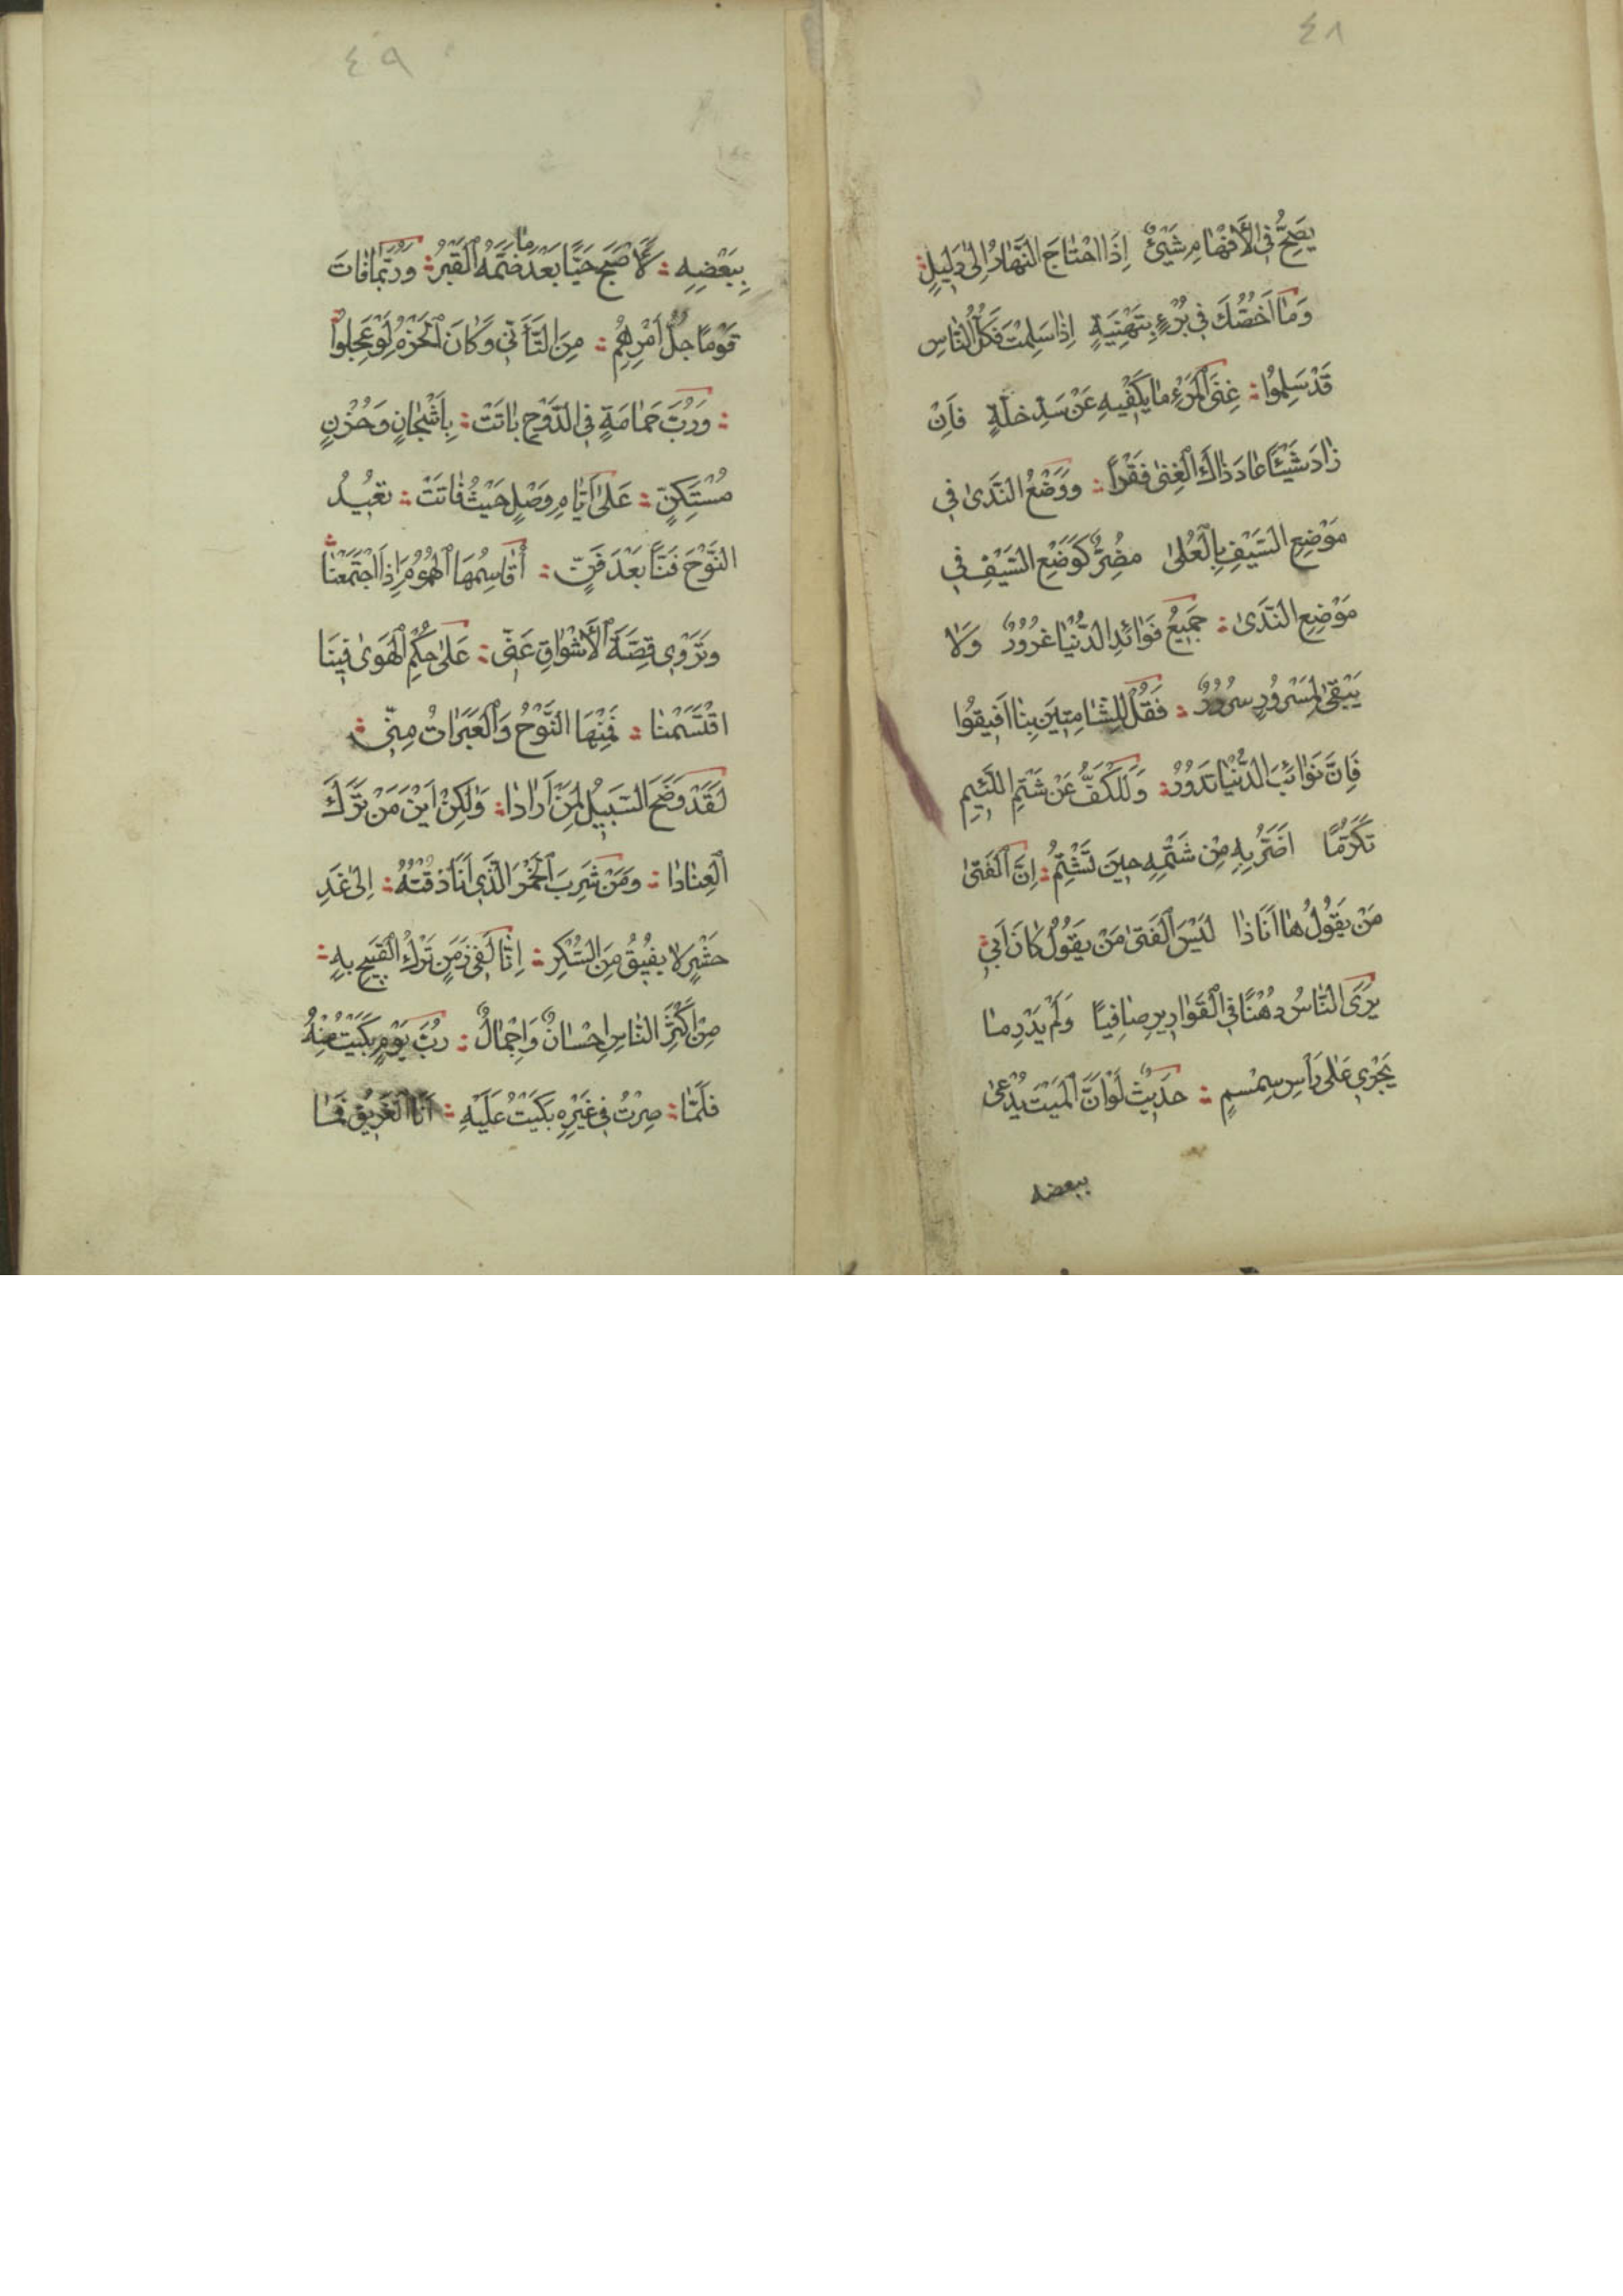 ٤٨
يَصِحُّ فِي الْأَفْهَامِ شَيْئٌ إِذَا احْتَاجَ النَّهَارُ إِلَى دَلِيلٍ
وَمَا أَخُصُّكَ فِي بُرْءٍ بِتَهْنِيَةٍ إِذَا سَلِمْتَ فَكُلُّ النَّاسِ
قَدْ سَلِمُوا غِنَى الْمَرْءِ مَا يَكْفِيهِ عَنْ سَدِّ خَلَّةٍ فَإِنْ
زَادَ شَيْئًا عَادَ ذَاكَ الْغِنَى فَقْرًا وَوَضْعُ النَّدَى فِي
مَوْضِعِ السَّيْفِ بِالْعُلَى مُضِرٌّ كَوَضْعِ السَّيْفِ فِي
مَوْضِعِ النَّدَى جَمِيعُ فَوَائِدِ الدُّنْيَا غُرُورٌ وَلَا
يَبْقَى لِمَسْرُورٍ سُرُورٌ فَقُلْ لِلشَّامِتِينَ بِنَا أَفِيقُوا
فَإِنَّ نَوَائِبَ الدُّنْيَا تَدُورُ وَلَلْكَفُّ عَنْ شَتْمِ اللَّئِيمِ
تَكَرُّمًا أَضَرُّ بِهِ مِنْ شَتْمِهِ حِينَ تَشْتِمُ إِنَّ الْفَتَى
مَنْ يَقُولُ هَا أَنَا ذَا لَيْسَ الْفَتَى مَنْ يَقُولُ كَانَ أَبِي
يَرَى النَّاسُ دُهْنًا فِي الْقَوَارِيرِ صَافِيًا وَلَمْ يَدْرِ مَا
يَجْرِي عَلَى رَأْسِ سِمْسِمٍ حَدِيثٌ لَوْ أَنَّ الْمَيْتَ يُدْعَى
ببعضه
٤٩
بِبَعْضِهِ لَأَصْبَحَ حَيًّا بَعْدَ مَا ضَمَّهُ الْقَبْرُ وَرُبَّمَا فَاتَ
قَوْمًا جُلُّ أَمْرِهِمِ مِنَ التَّأَنِّي وَكَانَ الْحَزْمُ لَوْ عَجِلُوا
وَرُبَّ حَمَامَةٍ فِي الدَّوْحِ بَاتَتْ بِأَشْجَانٍ وَحُزْنٍ
مُسْتَكِنٍّ عَلَى أَيَّامِ وَصْلٍ حَيْثُ فَاتَتْ تُعِيدُ
النَّوْحَ فَنًّا بَعْدَ فَنٍّ أُقَاسِمُهَا الْهُمُومَ إِذَا اجْتَمَعْنَا
وَتَرْوِي قِصَّةَ الْأَشْوَاقِ عَنِّي عَلَى حُكْمِ الْهَوَى فِينَا
اقْتَسَمْنَا فَمِنْهَا النَّوْحُ وَالْعَبَرَاتُ مِنِّي
لَقَدْ وَضَحَ السَّبِيلُ لِمَنْ أَرَادَا وَلَكِنْ أَيْنَ مَنْ تَرَكَ
الْعِنَادَا وَمَنْ شَرِبَ الْخَمْرَ الَّذِي أَنَا ذُقْتُهُ إِلَى غَدِ
حَشْرٍ لَا يُفِيقُ مِنَ السُّكْرِ إِنَّا لَفِي زَمَنٍ تَرْكُ الْقَبِيحِ بِهِ
مِنْ أَكْثَرِ النَّاسِ إِحْسَانٌ وَإِجْمَالٌ رُبَّ يَوْمٍ بَكَيْتُ مِنْهُ
فَلَمَّا صِرْتُ فِي غَيْرِهِ بَكَيْتُ عَلَيْهِ أَنَا الْغَرِيقُ فَمَا